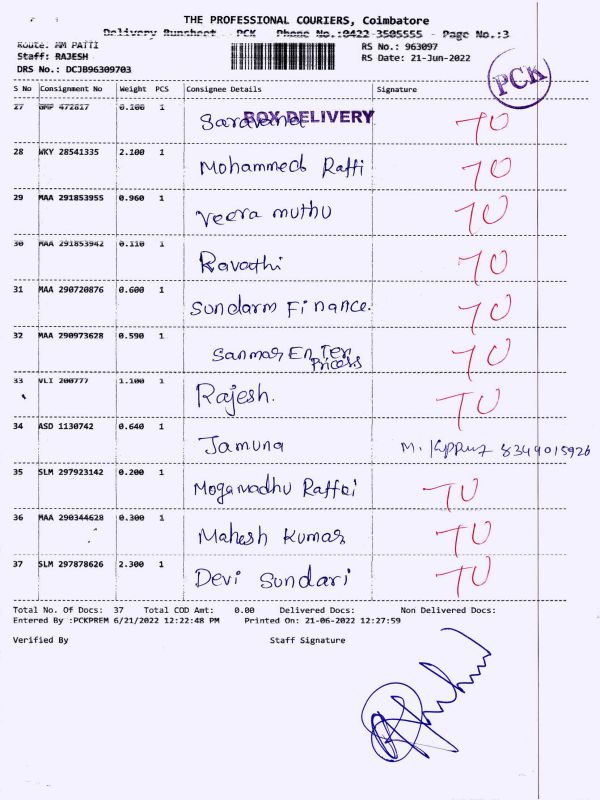 THE PROFESSIONAL COURIERS, Coimbatore
Delivery Runsheet - PCK Phone No.:0422-3505555 - Page No.:3
Route: MM PATTI
RS No.: 963097
Staff: RAJESH
RS Date: 21-Jun-2022
DRS No.: DCJB96309703
PCK
S No Consignment No Weight PCS Consignee Details Signature
BOX DELIVERY
27 GMP 472817 0.100 1 Saravana TU
28 WKY 28541335 2.100 1 Mohammed Raffi TU
29 MAA 291853955 0.960 1 Veera muthu TU
30 MAA 291853942 0.110 1 Ravathi TU
31 MAA 290720876 0.600 1 Sundarm Finance. TU
32 MAA 290973628 0.590 1 Sanmar Enter TU
Pricess
33 VLI 200777 1.100 1 Rajesh. TU
34 ASD 1130742 0.640 1 Jamuna M. 8349015926
35 SLM 297923142 0.200 1 TU
36 MAA 290344628 0.300 1 Mahesh Kumar TU
37 SLM 297878626 2.300 1 Devi Sundari TU
Total No. Of Docs: 37 Total COD Amt: 0.00 Delivered Docs: Non Delivered Docs:
Entered By :PCKPREM 6/21/2022 12:22:48 PM Printed On: 21-06-2022 12:27:59
Verified By Staff Signature